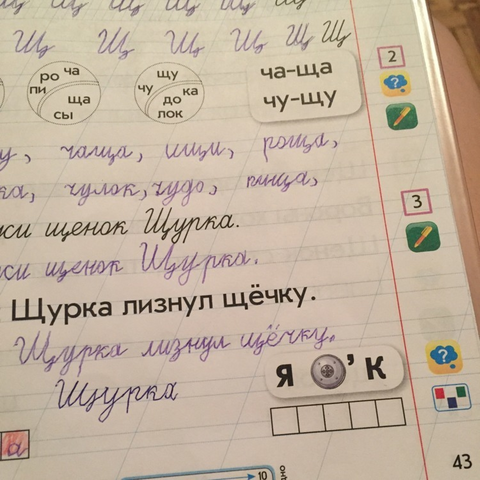 Щ Щ Щ Щ Щ Щ
2
ро ча
пи
ща
сы
щу
чу
ка
до
лок
ча-ща
чу-щу
у, чаща, ищи, роща,
ка, чулок, чудо, пища,
3
щенок Щурка.
щенок Щурка.
Щурка лизнул щёчку.
Щурка лизнул щёчку.
Щурка
Я ' К
а
10
43